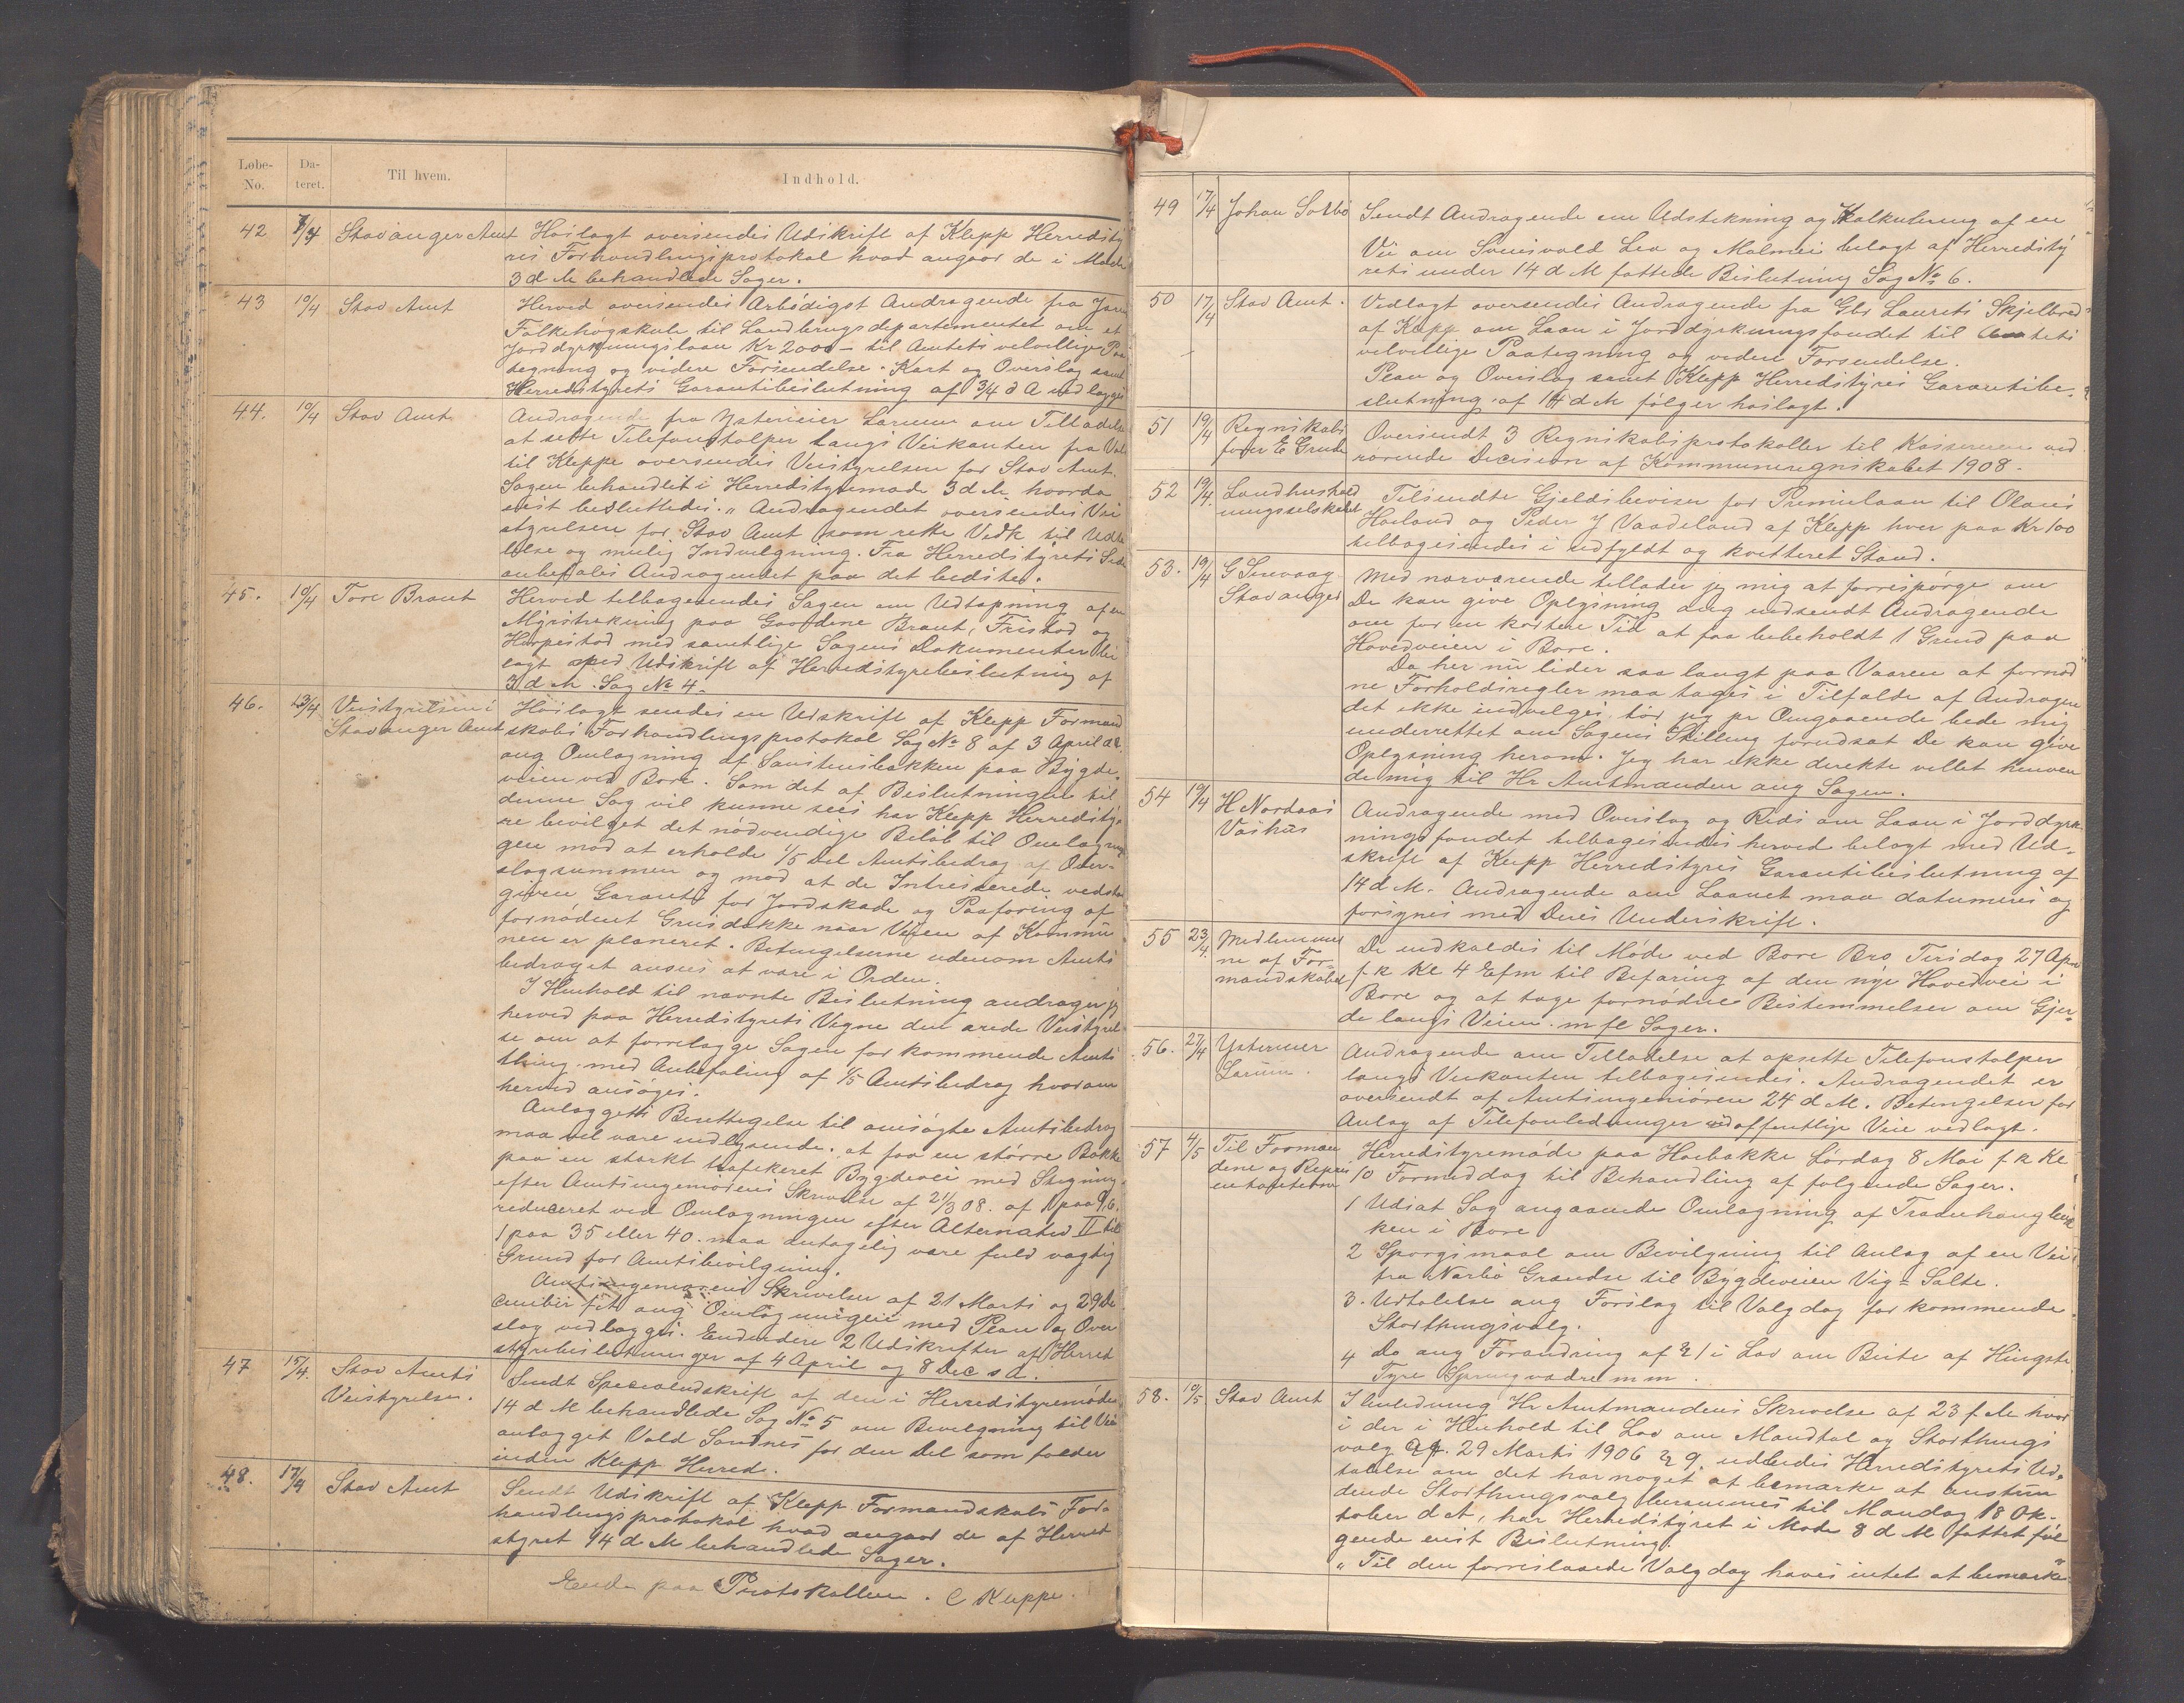 Løbe-No. Da-teret. Til hvem. Indhold.
42 7/4 Stavanger Amt Hoslagt oversendes Udskrift af Klepp Herredsty
res Forhandlingsprotokol hvad angaar de i Møde
3 d M behandlede Sager.
43 10/4 Stav Amt Herved oversendes Arbødigst Andragende fra Jæren
Folkehøgskule til Landbrugsdepartementet om et
Jorddyrkningslaan Kr 2000 – til Amtets velvillige Paa
tegning og videre Forsendelse. Kart og Overslag samt
Herredstyrets Garantibeslutning af 3/4 d A vedlægges
44. 10/4 Stav Amt Andragende fra Ysterieier Larum om Tilladelse
at sette Telefonstolper langs Veikanten fra
til Kleppe oversendes Veistyrelsen for Stav Amt.
Sagen behandlet i Herredstyremøde 3 d M. hvorda
enst besluttedes: „Andragendet oversendes Vei
styrelsen for Stav Amt som rette Vedk til Udta
lelse og mulig Indvilgning. Fra Herredstyrets Side
anbefales Andragendet paa det bedste.
45. 10/4 Tore Braut Herved tilbagesendes Sagen om Udtapning af en
Myrstrekning paa Gaardene Braut, Fristad og
Horpestad med samtlige Sagens Dokumenter bi
lagt med Udskrift af Herredstyrebeslutning af
3 d M. Sag № 4.
46. 13/4 Veistyrelsen i Hoslagt sendes en Udskrift af Klepp Formand
Stavanger Amt skabs Forhandlingsprotokol Sag № 8 af 3 April d A.
ang Omlægning af bakken paa Bygde
veien ved Bore. Som det af Beslutningen til
denne Sag vil kunne sees har Klepp Herredsty
re bevilget det nødvendige Beløb til Omlægnin
gen mod at erholde 1/5 Del Amtsbidrag af Over-
slagsummen og mod at de Intreserede vedsta
given Garanti for Jordskade og Paaføring af
fornødent Grusdekke naar Veien af Kommu
nen er planeret. Betingelserne udenom Amts
bidraget ansees at være i Orden.
I Henhold til nævnte Beslutning andrager jeg
herved paa Herredstyrets Vegne den ærede Veistyrel
se om at forrelægge Sagen for kommende Amts
thing med Anbefaling af 1/5 Amtsbidrag hvorom
herved ansøges.
Anlægget Berettigelse til ansøgte Amtsbidrag
maa vel være indlysende, at faa en større Bakke
paa en stærkt trafikeret Bygdevei med Stigning
efter Amtsingeniørens Skrivelse af 21/3 08. af 1 paa 9,6.
reduceret ved Omlægningen efter Alternativ II til
1 paa 35 eller 40. maa antagelig være fuld vægtig
Grund for Amtsbevilgning.
Amtsingeniørens Skrivelser af 21 Marts og 29 De
cember ang Omlægningen med Plan og Over
slag vedlægges. Endvidere 2 Udskrifter af Herred
styrebeslutninger af 4 April og 8 Dec s d.
47 15/4. Stav Amts Sendt Specialudskrift af den i Herredstyremøde
Veistyrelse. 14 d M behandlede Sag № 5 om Bevilgning til Vei
anlægget Vold Sandnes for den Del som falder
inden Klepp Herred.
48. 17/4 Stav Amt Sendt Udskrift af Klepp Formandskabs For-
handlingsprotokol hvad angaar de af Herred
styret 14 d M behandlede Sager.
Ende paa Protokollen. C Kleppe.
49 17/4 Johan Solbø Sendt Andragende om Udstikning og Kalkulering af en
Vei om Svensvold Lea og Malmei belagt af Herredsty
rets under 14 d M fattede Beslutning Sag № 6.
50 17/4 Stav Amt. Vedlagt oversendes Andragende fra Gbr Laurets Skjelbred
af Klepp om Laan i Jorddyrkningsfondet til Amtets
velvillige Paategning og videre Forsendelse.
Plan og Overslag samt Klepp Herredstyres Garantibe-
slutning af 14 d M følger hoslagt.
51 19/4 Regnskabs Oversendt 3 Regnskabsprotokoller til Kassereren ved
fører E Grude rørende Decision af Kommuneregnskabet 1908.
52 19/4. Landhushold Tilsendte Gjeldsbeviser for Premielaan til Olaus
ningsselskabet Haaland og Peder J Vaadeland af Klepp hver paa Kr 100
tilbagesendes i udfyldt og kvitteret Stand.
53. 19/4 G Snevaag Med nærværende tillader jeg mig at forrespørge om
Stavanger De kan give Oplysning ang indsendt Andragende
om for en kortere Tid at faa bibeholdt 1 Grind paa
Hovedveien i Bore.
Da her nu lider saa langt paa Vaaren at fornød
ne Forholdsregler maa tages i Tilfælde af Andragen
det ikke indvilges, tør jeg pr Omgaaende bede mig
underrettet om Sagens Stilling forudsat De kan give
Oplysning herom. Jeg har ikke direkte villet henven
de mig til Hr Amtmanden ang Sagen.
54 19/4 H Nordaas Andragende med Overslag og Rids om Laan i Jorddyrk
Vashus ningsfondet tilbagesendes herved belagt med Ud-
skrift af Klepp Herredstyres Garantibeslutning af
14 d M. Andragende om Laanet maa datumeres og
forsynes med Deres Underskrift.
55 23/4. Medlemmer De indkaldes til Møde ved Bore Bro Tirsdag 27 April
ne af For f k Kl 4 Efm til Befaring af den nye Hovedvei i
mandskabet Bore og at tage fornødne Bestemmelser om Gjer-
de langs Veien. m fl Sager.
56. 27/4 Ysterieier Andragende om Tilladelse at opsette Telefonstolper
Larum. langs Veikanten tilbagesendes. Andragendet er
oversendt af Amtsingeniøren 24 d M. Betingelser for
Anlæg af Telefonledninger ved offentlige Veie vedlagt.
57 4/5 Til Forman Herredstyremøde paa Hoebakke Lørdag 8 Mai f k Kl
dene og Repræs 10 Formiddag til Behandling af følgende Sager.
entanterne
1 Udsat Sag angaaende Omlægning af bak
ken i Bore
2 Spørgsmaal om Bevilgning til Anlæg af en Vei
fra Nærbø Grændse til Bygdeveien Vig – Salte.
3. Udtalelse ang Forslag til Valgdag for kommende
Storthingsvalg.
4 Do ang Forandring af § 1 i Lov om Beite af Hingste
Tyre Springvædre m m.
58. 10/5 Stav Amt I Anledning Hr Amtmandens Skrivelse af 23 f M hvor
i der i Henhold til Lov om Mandtal og Storthings
valg af. 29 Marts 1906 § 9. udbedes Herredstyrets Ud-
talelse om det har noget at bemærke at anstun
dende Storthingsvalg berammes til Mandag 18 Ok-
tober d A, har Herredstyret i Møde 8 d M fattet føl
gende enst Beslutning:
„Til den forreslaaede Valgdag haves intet at bemærke"